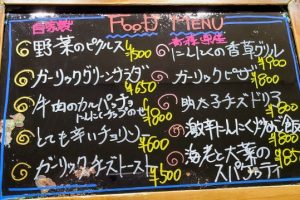 FOOD MENU
自家製
野菜のピクルス
¥500
ガーリックグリーンサラダ
¥650
牛肉のカルパッチョ
にんにくチップのせ
¥800
とても辛いチョリソー
¥600
ガーリックチーズトースト
¥500
青森県産
にんにくの香草グリル
¥900
ガーリックピザ
¥800
明太子チーズドリア
¥800
激辛にんにく炒めご飯
¥800
海老と大葉の
スパゲッティ